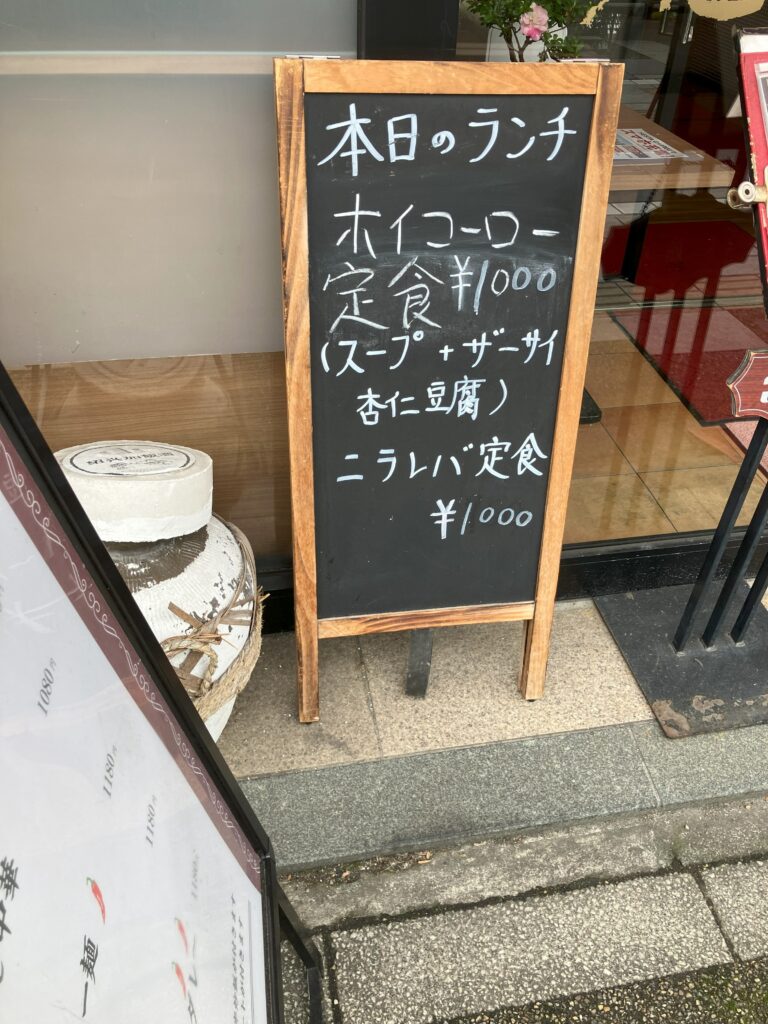 本日のランチ
ホイコーロー
定食¥1000
(スープ + ザーサイ
杏仁豆腐)
ニラレバ定食
¥1000
1080円
1180円
1180円
1180円